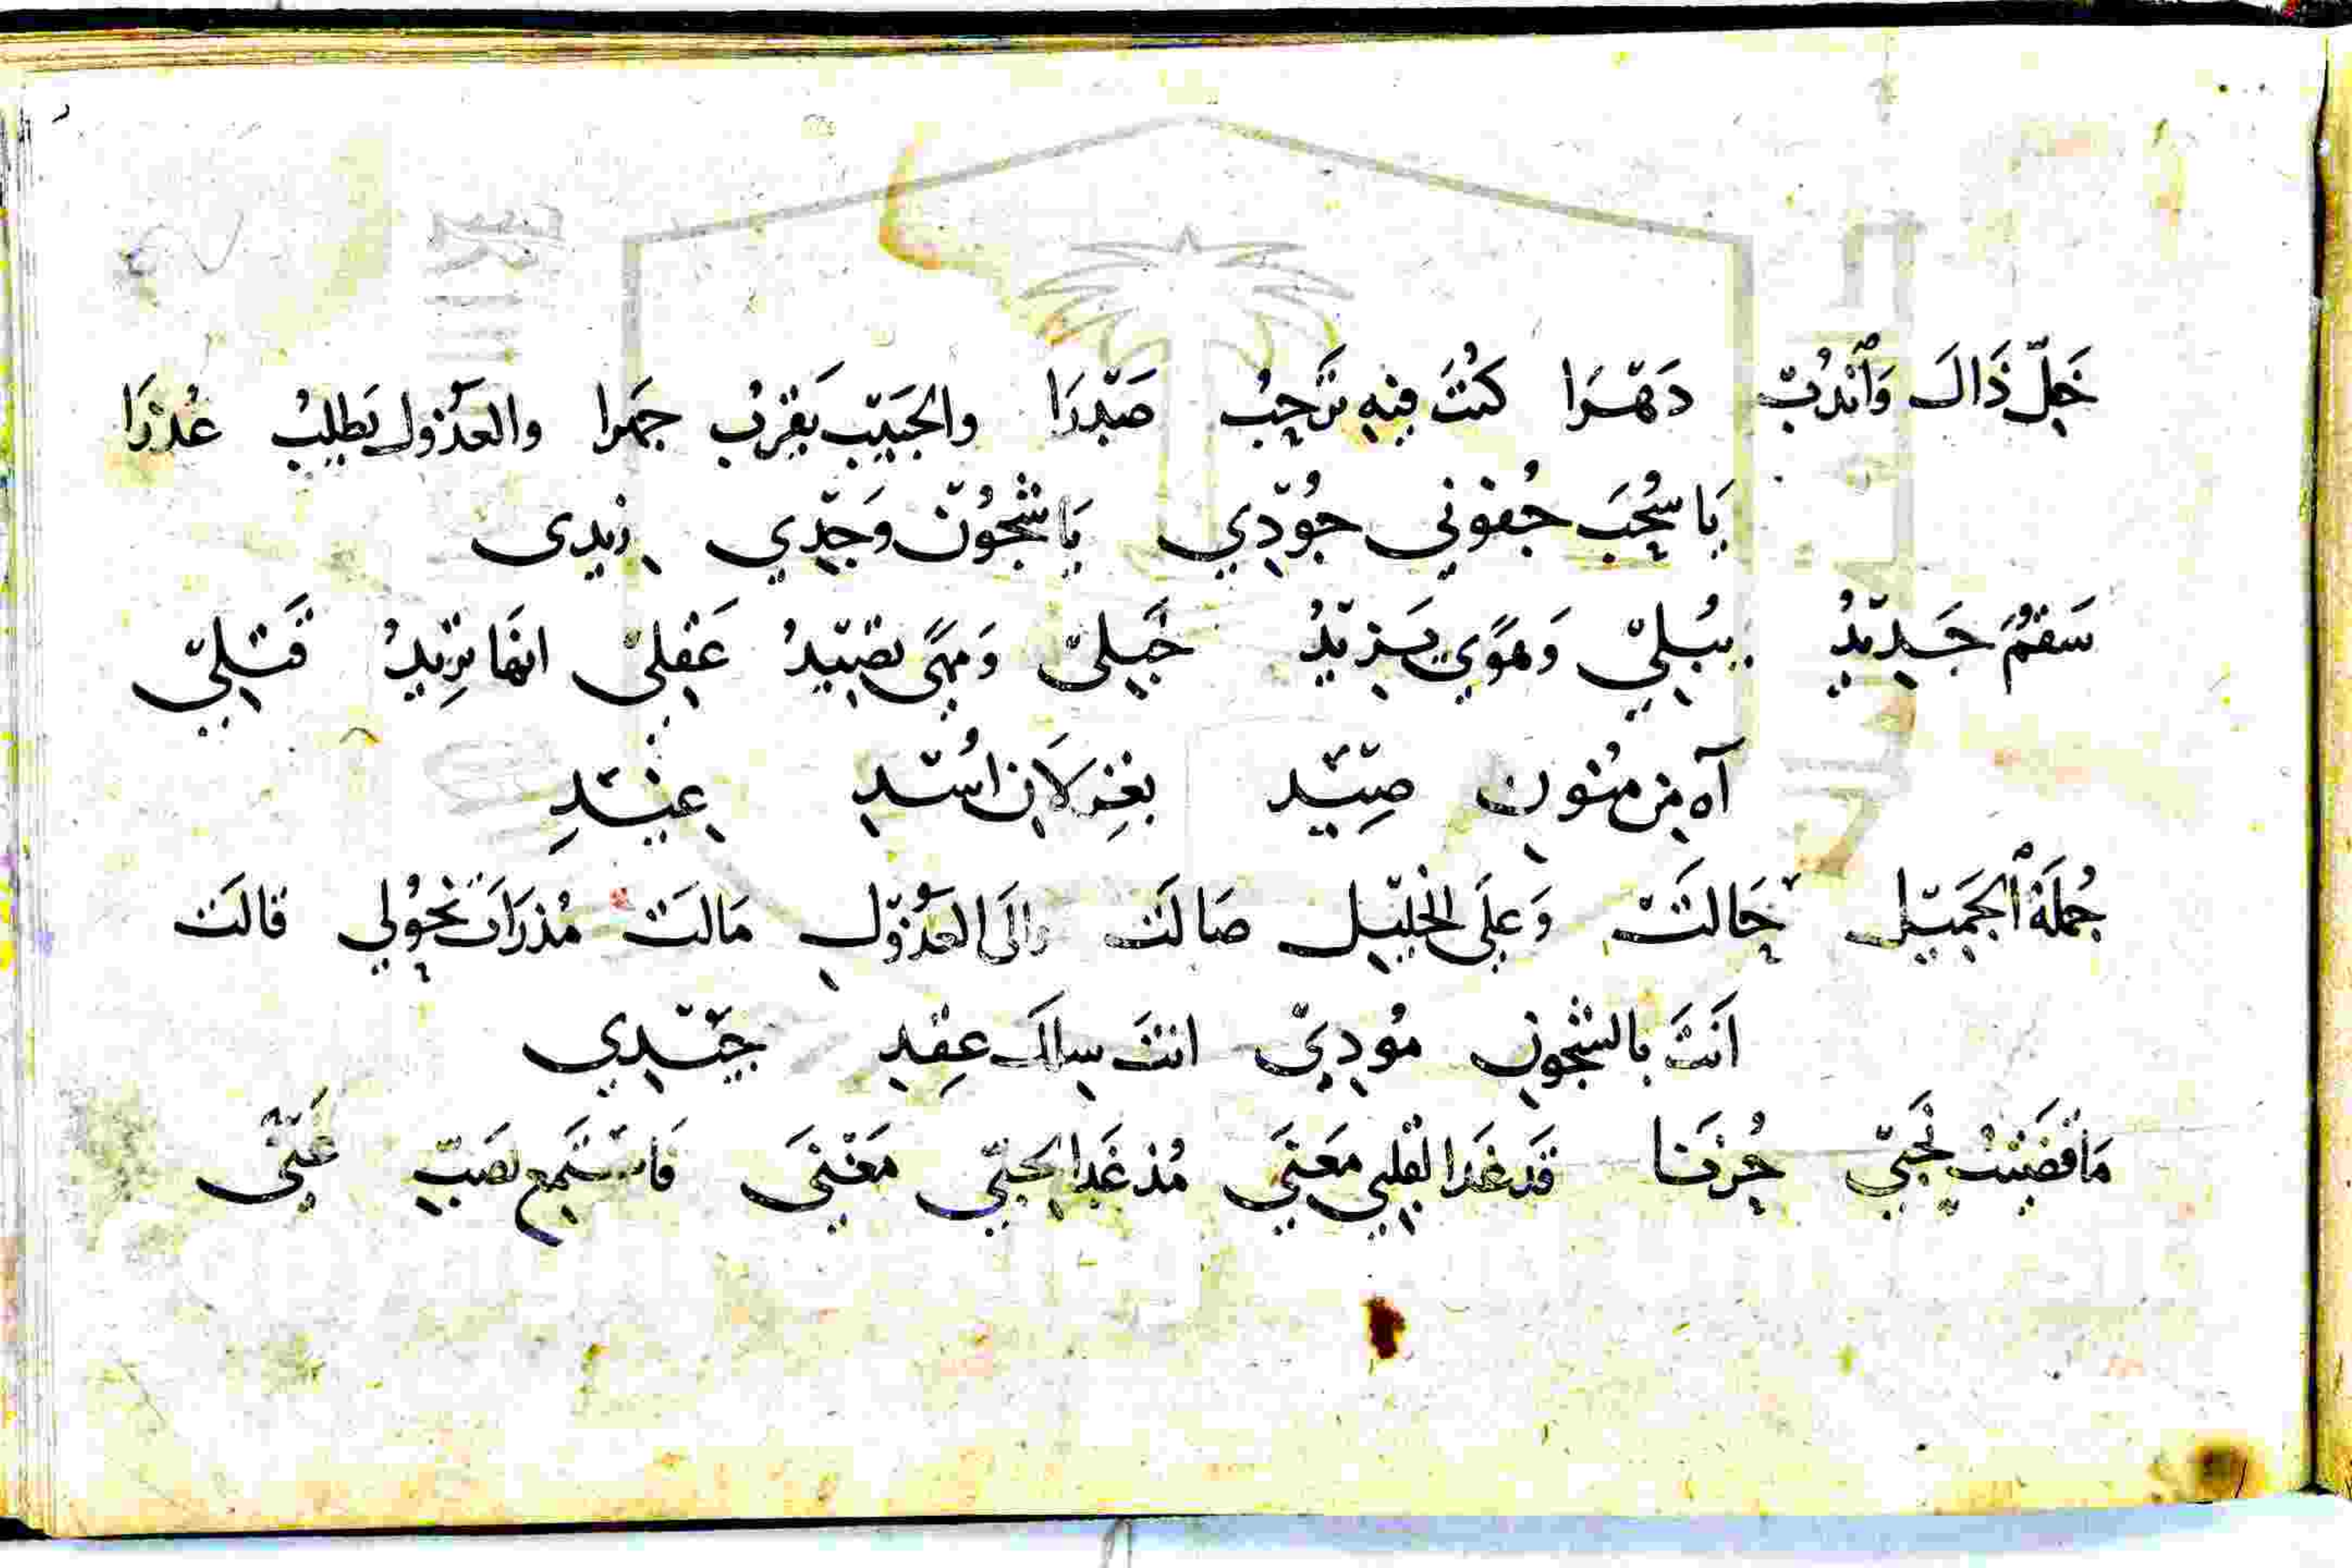 خَلِّ ذَالَ وَٱنْدُبْ دَهْرَا كُنْتَ فِيْهِ تَرْحِبُ صَدْرَا والحَبيْب يَقِرْبُ جمَرا والعَذْول يَطلِبُ عُذرَا
يَا سُحْبَ جُفونِي جُوْدِي يَا شُجُوْنَ وَجْدِي زِيدى
سَقمٌ جَدِيْدٌ يُبْلِيْ وَهَوًي يَزِيْدُ خَبِليْ وَمَهًى تصِيْدُ عَقِلىْ انهَا تِرْيدُ قَتْلِيْ
آه مِن مُنُونِ صِيْدِ بغِزلَانِ اُسْدِ غِيْدِ
جُملَةُ ٱلجَمِيْلِ حَالَتْ وَعَلَى الخلِيْلِ صَالَتْ وَالَى العَذُوْلِ مَالَتْ مُذ رَاَتْ نُحُوْلِي قالَتْ
اَنْتَ بالشُجُونِ مُوْدِيْ انتَ سِالكَ عِقِدِ جِيْدِي
مَا قضَيْتُ نَحْبِيْ حُزنَا قَدغَدَا لقَلبِي مَعَنَي مُذ غَدَا بحبّي مَغْنَي فَاسْتَمِع لصَبٍّ عَنِّي